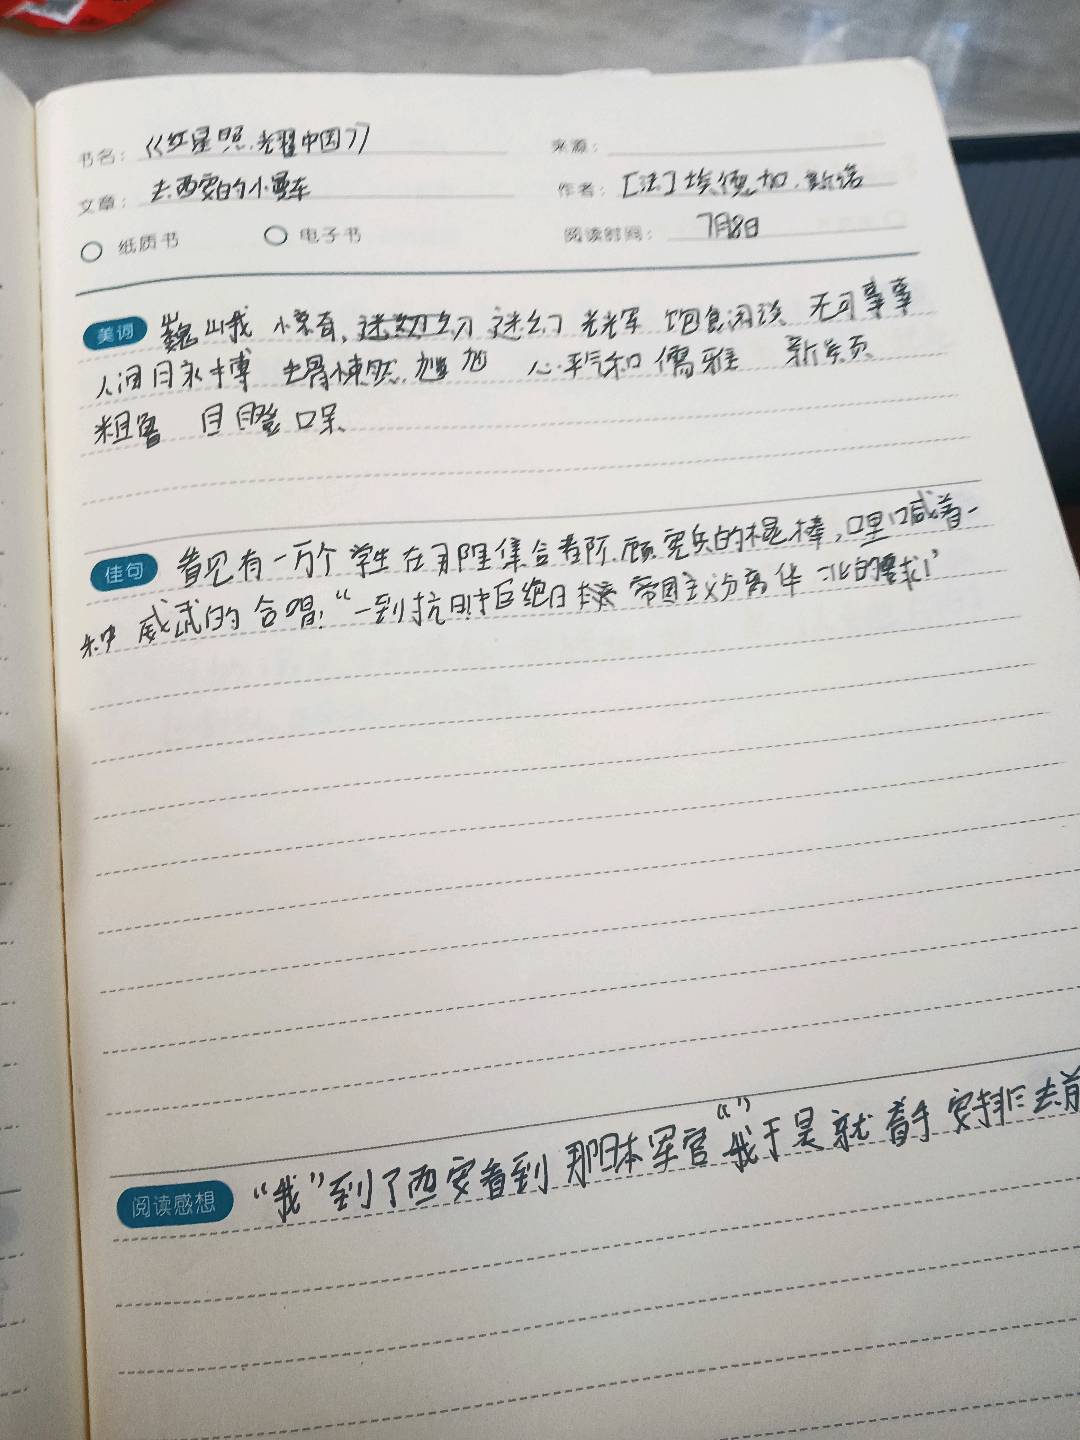 书名：《红星照耀中国》 来源：
文章：去西安的慢车 作者：[法]埃德加.斯诺
纸质书 电子书 阅读时间：7月8日
美词 巍峨 惊奇、迷幻 光辉 饱食闲谈 无可事事
人间 毛骨悚然 尴尬 心平气和 儒雅
粗鲁 目瞪口呆
佳句 看见有一万个学生在那里集合着所.顾宪兵的棍棒，口里喊着一
种威武的合唱！“一到抗日！拒绝日本帝国主义分离华北的要求！”
阅读感想 “我”到了西安看到那日本军官“我”于是就着手安排去前